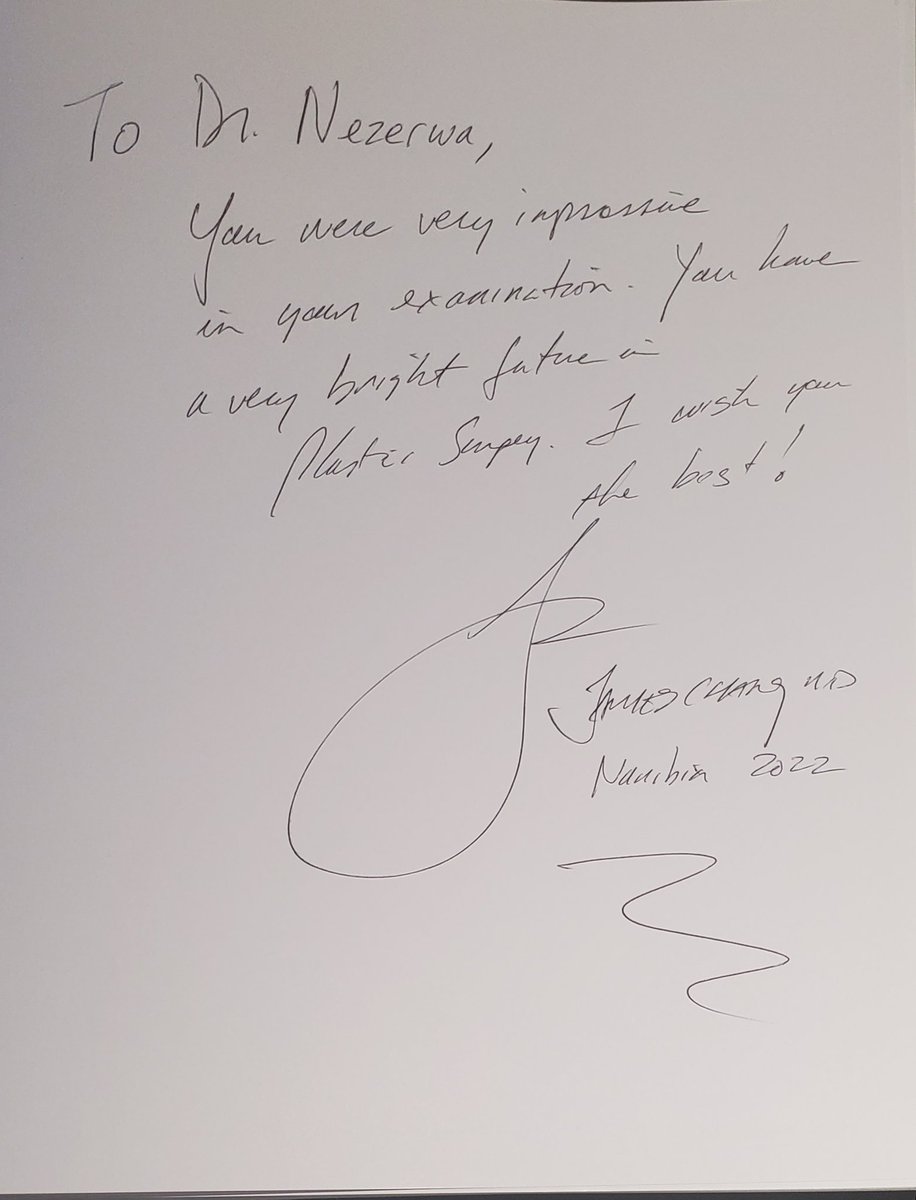 To Dr. Nezerwa,
You were very impressive
in your examination. You have
a very bright future in
Plastic Surgery. I wish you
the best!
JAMES CHANG MD
Namibia 2022